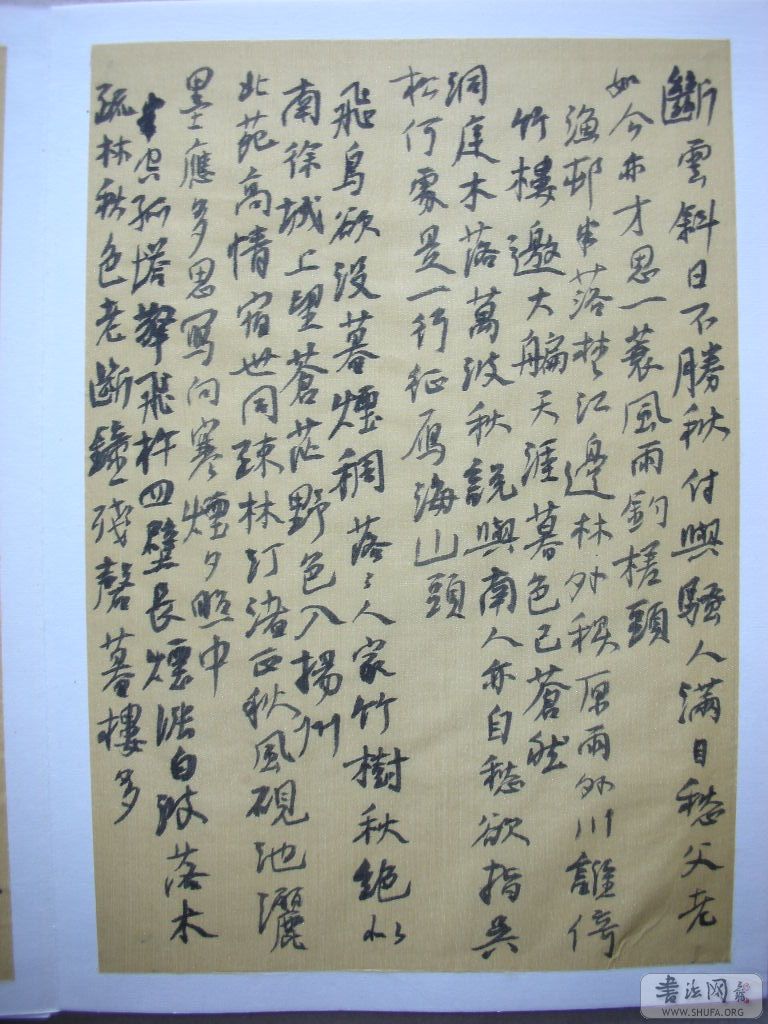 斷雲斜日不勝秋付與騷人滿目愁父老
如今亦才思一蓑風雨釣槎頭
漁邨半落楚江邊林外秋原雨外川誰倚
竹樓邀大艑天涯暮色已蒼然
洞庭木落萬波秋說與南人亦自愁欲指吳
松何處是一行征雁海山頭
飛鳥欲沒暮煙稠落々人家竹樹秋絶似
南徐城上望蒼茫野色入揚州
北苑高情宿世同疎林汀渚正秋風硯池灑
墨應多思寫向寒煙夕照中
半空孤塔翠飛杵四壁長煙淡白波落木
疏林秋色老斷鐘殘磬暮樓多
書法网
WWW.SHUFA.ORG